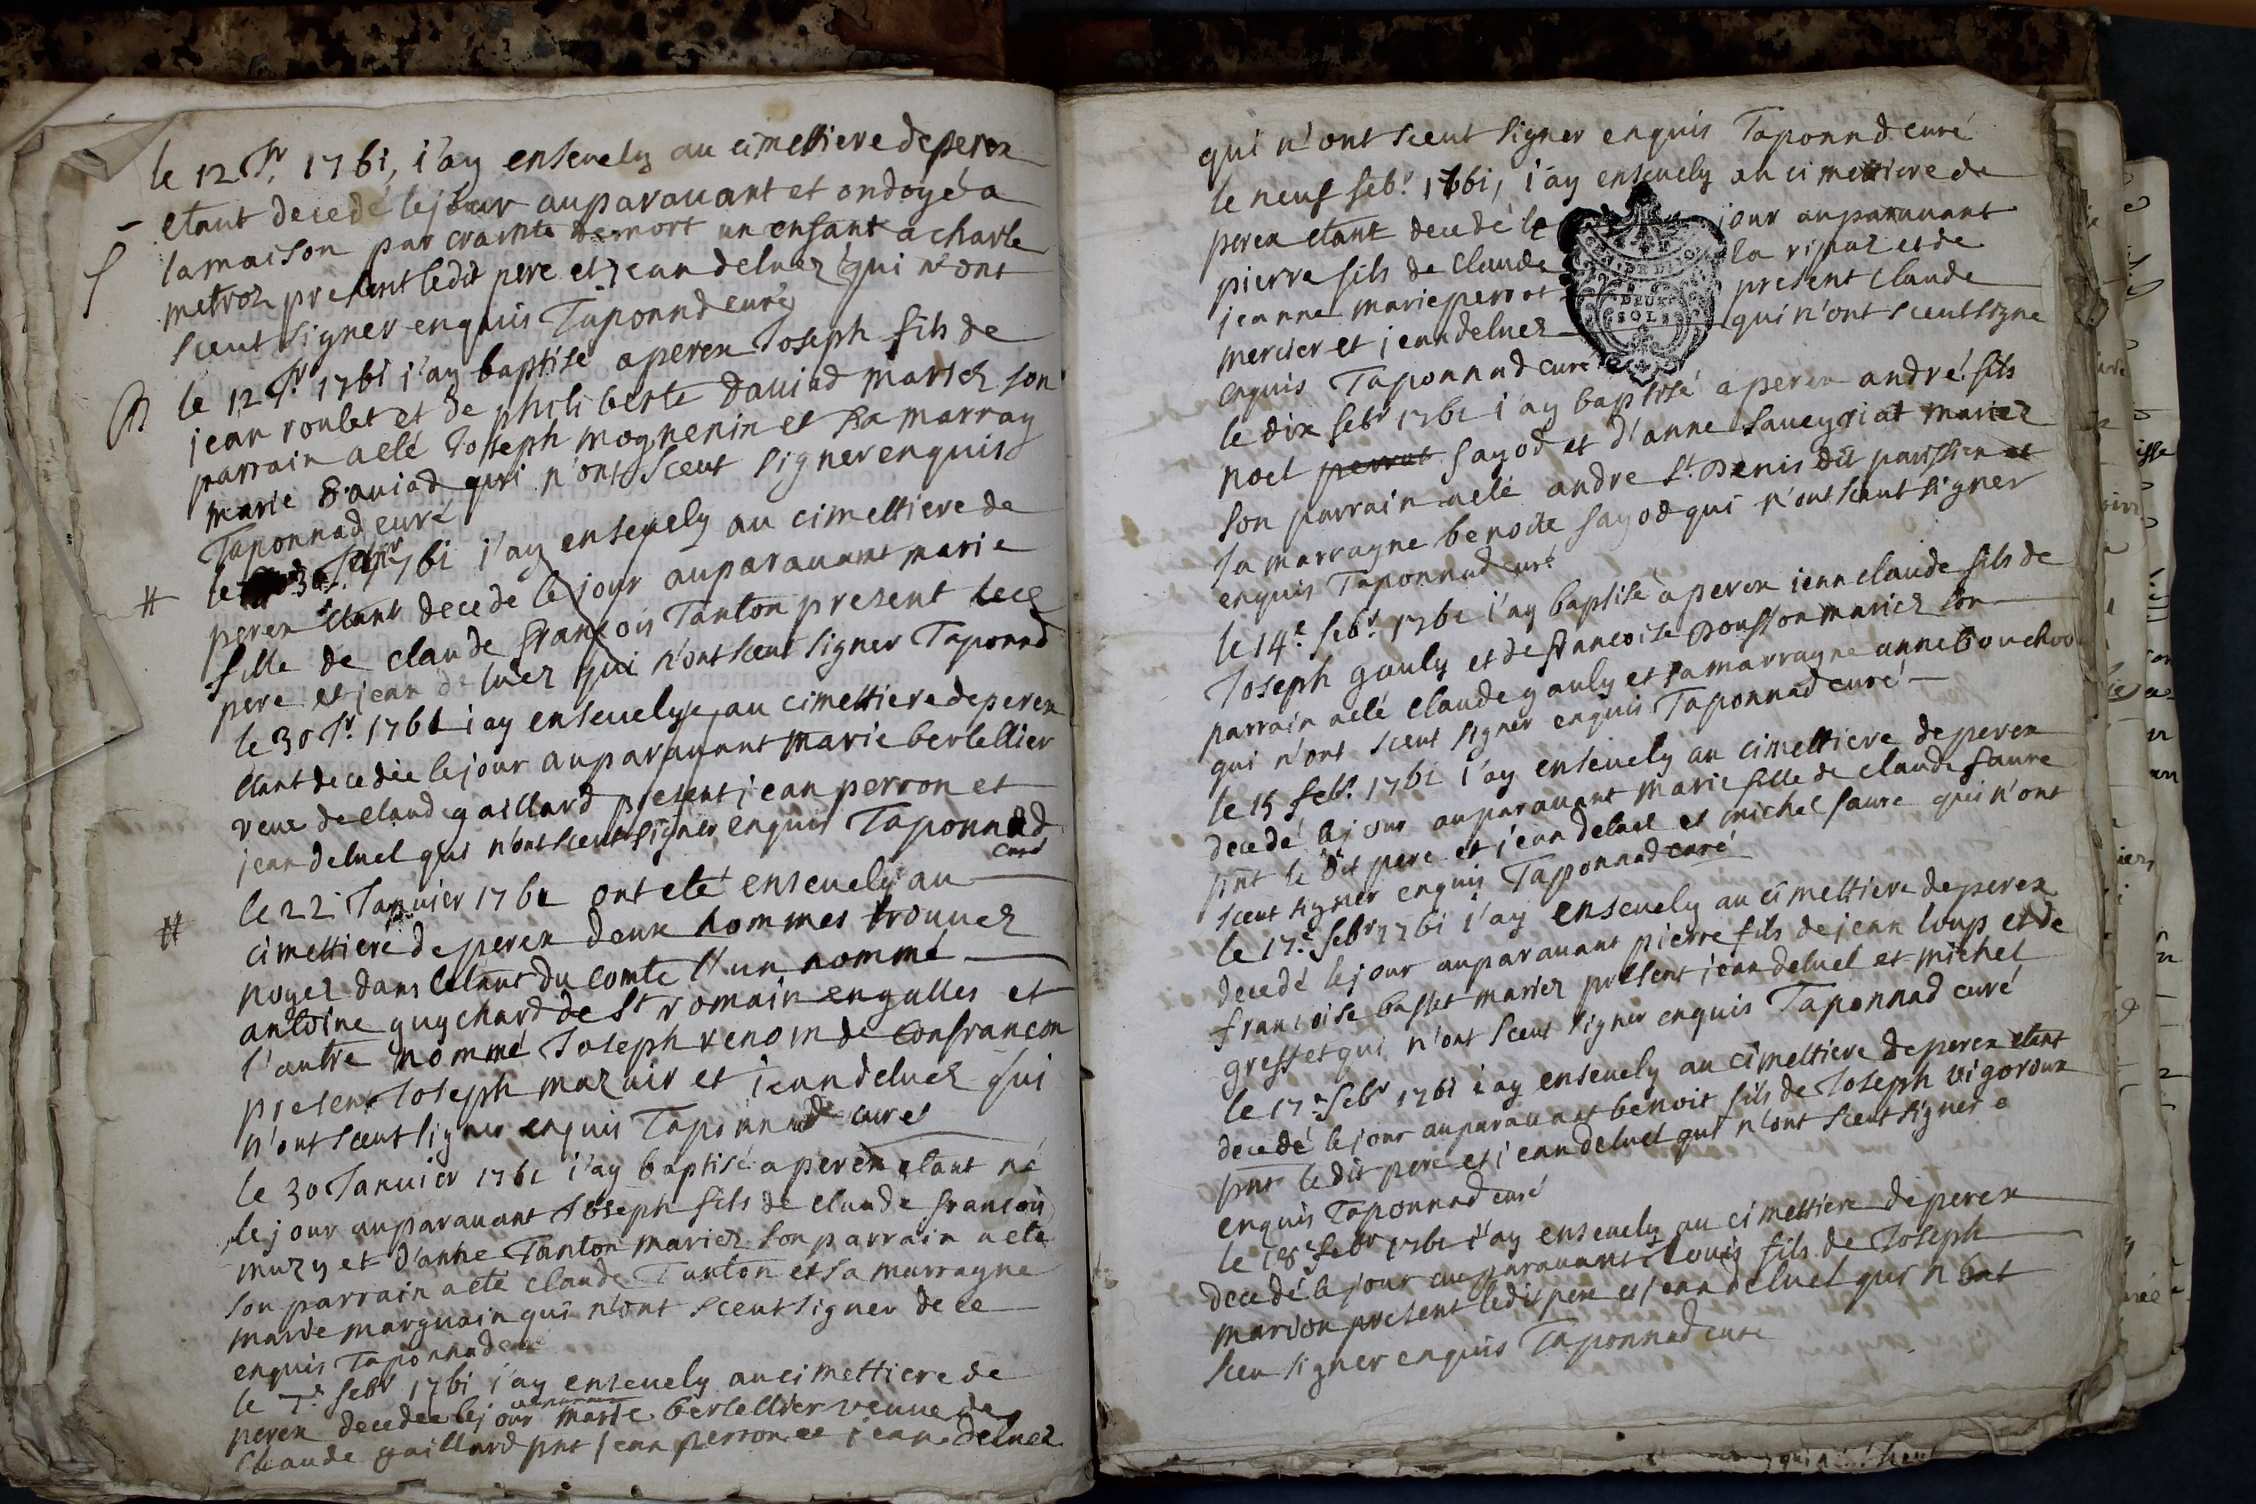 le 12 Jr. 1761, i'ay enseuely au cimettiere de perex
etant decedé le jour auparauant et ondoyé a
la maison par crainte de mort un enfant a charle
metroz present ledit pere et jean deluez qui n'ont
sceut signer enquis Taponnd curé
le 12 Jr. 1761 i'ay baptisé a perex Joseph fils de
jean roulet et de philiberte dauiad mariez son
parrain a eté Joseph mognenin et sa marray
marie dauiad qui n'ont sceut signer enquis
Taponnad curé
le 30 1761 i'ay enseuely au cimettiere de
perex etant decede le jour auparauant marie
fille de claude francois Tanton present
pere et jean de luez qui n'ont sceut signer Taponnd
le 30 Jr. 1761 i ay enseuelye au cimettiere de perex
etant decedée le jour auparauant marie bertellier
veue de claude gaillard present jean perron et
jean deluel qui n'ont sceut signer enquis Taponnad
curé
le 22 Januier 1761 ont eté enseuely au
cimettiere de perex deux hommes trouuez
noyez dans letant du comte l'un nommé
antoine guychard de St romain engalles et
l'autre nommé Joseph renom de Confrancon
present Joseph mazuir et jean deluez qui
n'ont sceut signer enquis Taponnad curé
le 30 Januier 1761 i'ay baptisé a perex etant né
le jour auparauant Joseph fils de claude francois
muzy et d'anne Tanton mariez son parrain a eté
son parrain a eté claude Tanton et sa marragne
marie marguain qui n'ont sceut signer de ce
enquis Taponnad curé
le 7e. febr 1761 i'ay enseuely au cimettiere de
perex decedee le jour marie bertellier veuue de
claude gaillard pnt jean perron et jean deluez
qui n'ont sceut signer enquis Taponnd curé
le neuf febr. 1761, i'ay enseuely au cimettiere de
perex etant decedé le jour auparauant
pierre fils de claude la ripaz et de
jeanne marie perrot present claude
DEUX
SOLS
mercier et jean deluez qui n'ont sceut signe
enquis Taponnad curé
le dix febr 1761 i'ay baptisé a perex andré fils
noel perrut sayod et d'anne saueyriat mariez
son parrain a eté andre St. Denis dit parissien et
sa marragne benoite sayod qui n'ont sceut signer
enquis Taponnad curé
le 14e. febr. 1761 i'ay baptisé a perex jean claude fils de
Joseph gauly et de francoise ponsson mariez son
parrain a eté claude gauly et sa marragne anne bouchou
qui n'ont sceut signer enquis Taponnad curé
le 15 febr. 1761 i'ay enseuely au cimettiere de perex
decedé le jour auparauant marie fille de claude faure
pnt le dit pere et jean deluel et michel faure qui n'ont
sceut signer enquis Taponnad curé
le 17e. febr 1761 i'ay enseuely au cimettiere de perex
decedé le jour auparauant pierre fils de jean loup et de
francoise basset mariez present jean deluel et michel
gresset qui n'ont sceut signer enquis Taponnad curé
le 17e febr 1761 i ay enseuely au cimettiere de perex etant
decedé le jour auparauant benoit fils de Joseph vigoroux
pnt le dit pere et jean deluel qui n'ont sceut signer
enquis Taponnad curé
le 18e febr 1761 i'ay enseuely au cimettiere de perex
decedé le jour auparauant Louis fils de Joseph
marion present ledit pere et jean deluel qui n'ont
sceu signer enquis Taponnad cure